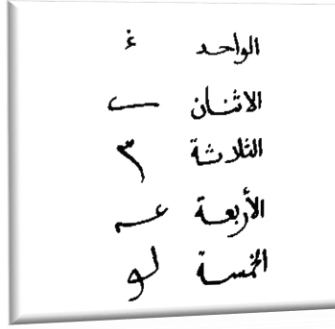 الواحد
الاثنان
الثلاثة ٣
الأربعة
الخمسة لو